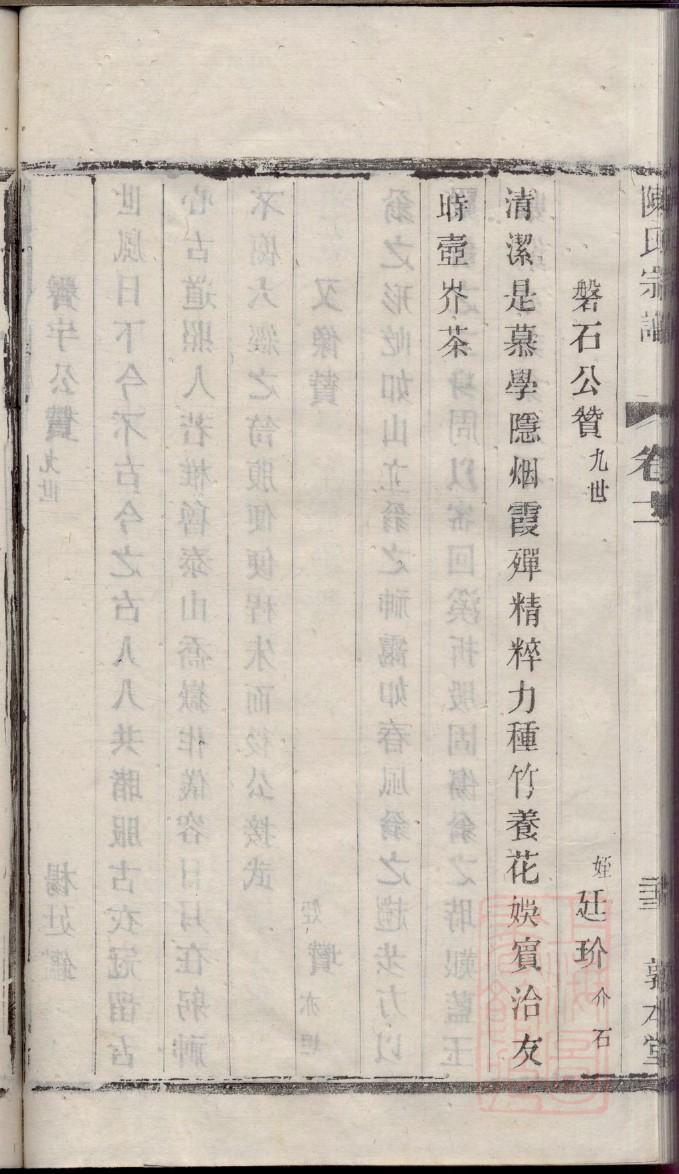 陳氏宗譜
卷
敦本堂
磐石公贊 九世
姪 廷玠 介石
清潔是慕學隱烟霞殫精粹力種竹養花娛賓洽友
時壺岕茶